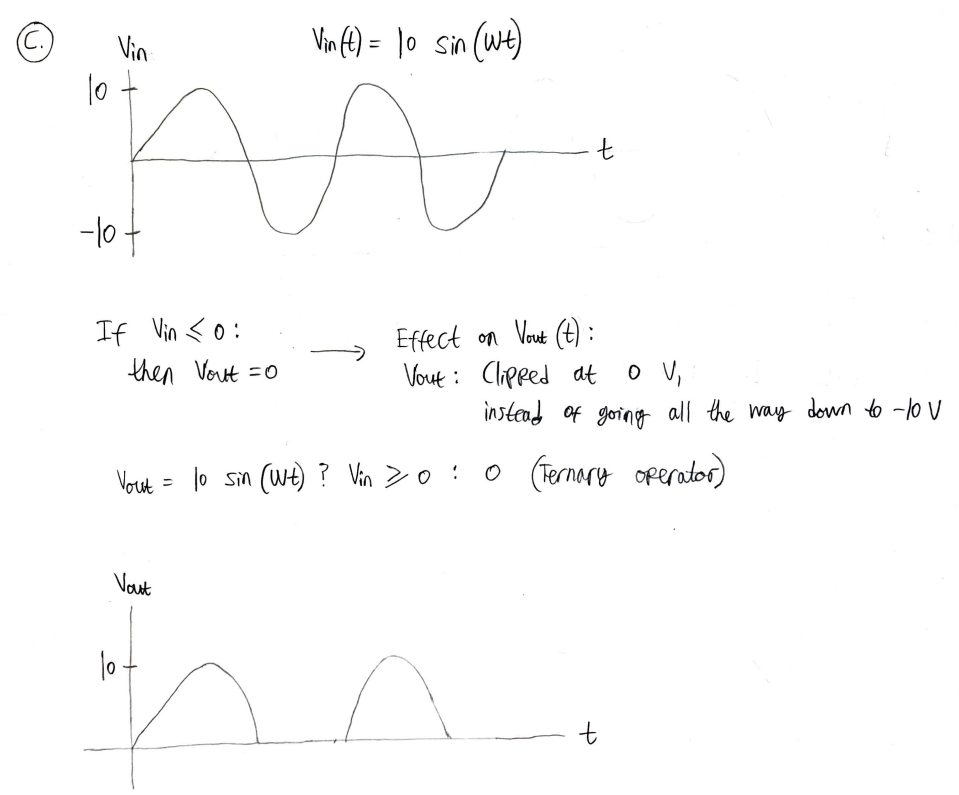 C.
Vin
Vin(t) = 10 sin(Wt)
10
t
-10
If Vin ≤ 0:
then Vout = 0
→ Effect on Vout(t):
Vout: Clipped at 0 V,
instead of going all the way down to -10 V
Vout = 10 sin(Wt) ? Vin ≥ 0 : 0 (Ternary operator)
Vout
10
t